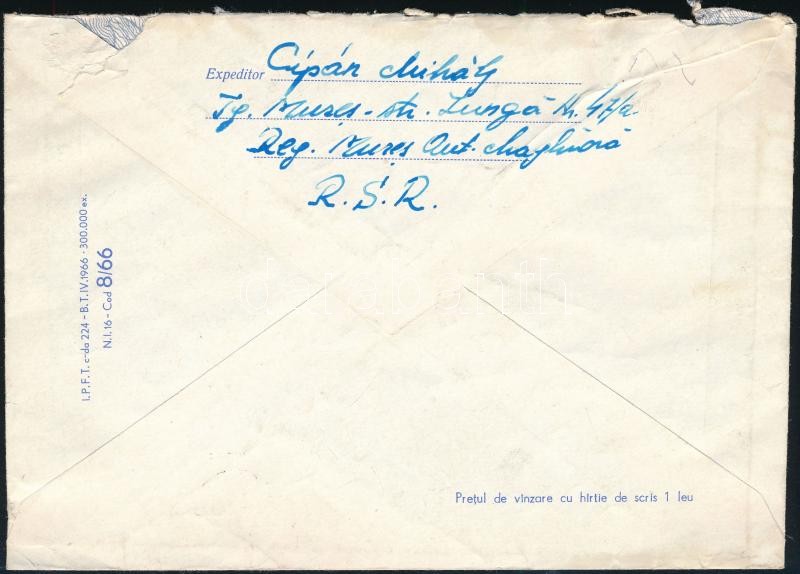 Expeditor Cipán Mihály
Tg. Mureș - str. Lungă Nr. 47/a
Reg. Mureș Aut. Maghiară
R.S.R.
I.P.F.T. c-da 224 - B.T.IV.1966 · 300.000 ex.
N.I.16 - Cod 8/66
Prețul de vînzare cu hîrtie de scris 1 leu